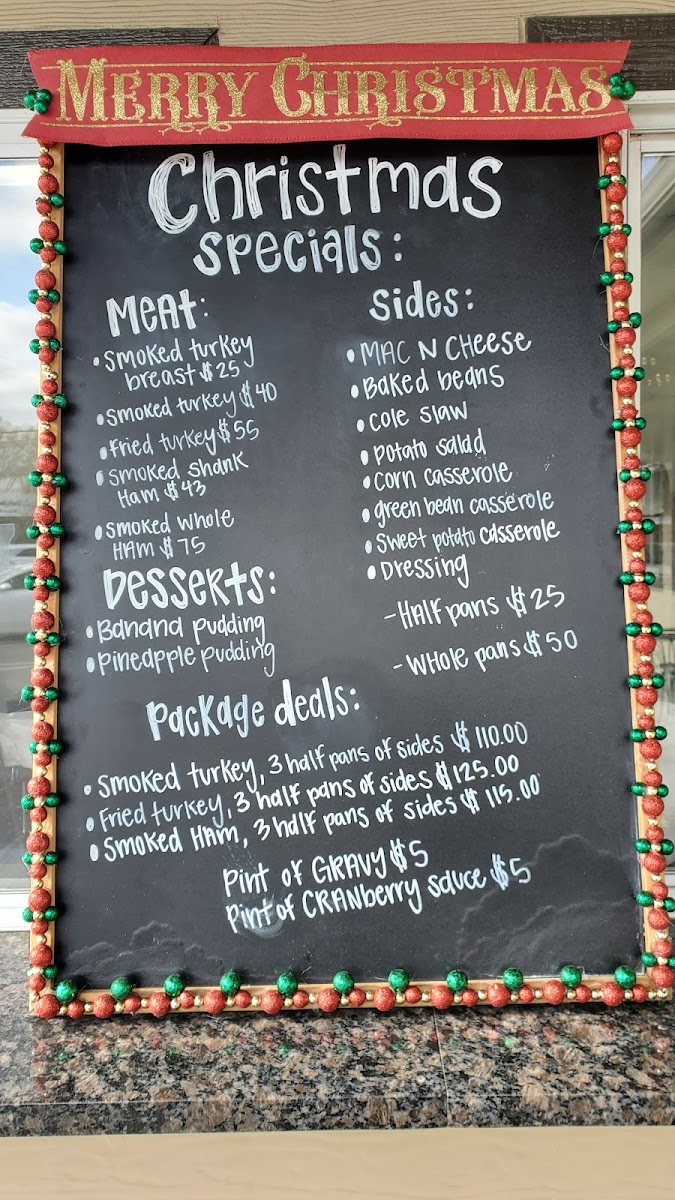 MERRY CHRISTMAS
Christmas
specials:
Meat:
• smoked turkey
breast $25
• smoked turkey $40
• fried turkey $55
• smoked shank
Ham $43
• smoked whole
HAM $75
Desserts:
• Banana pudding
• pineapple pudding
sides:
• MAC N CHeese
• Baked beans
• cole slaw
• potato salad
• corn casserole
• green bean casserole
• sweet potato casserole
• Dressing
- Half pans $25
- Whole pans $50
package deals:
• Smoked turkey, 3 half pans of sides $110.00
• Fried turkey, 3 half pans of sides $125.00
• Smoked Ham, 3 half pans of sides $115.00
Pint of GRAVY $5
Pint of CRANberry sauce $5